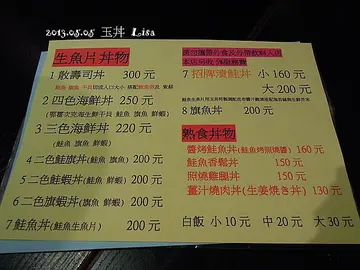 2013.05.05 玉丼 Lisa
生魚片丼物
1 散壽司丼 300 元
2 四色海鮮丼 250 元
3 三色海鮮丼 220 元
(鮭魚 旗魚 鮮蝦)
4 二色鮭旗丼(鮭魚 旗魚) 200 元
5 二色鮭蝦丼(鮭魚 鮮蝦) 200 元
6 二色旗蝦丼(旗魚 鮮蝦) 200 元
7 鮭魚丼(鮭魚生魚片) 200 元
請勿攜帶外食及外帶飲料入店
7 招牌漬鮭丼 小 160 元
大 200 元
8 旗魚丼 200 元
熟食丼物
醬烤鮭魚丼(鮭魚烤照燒醬) 160 元
鮭魚香鬆丼 150 元
照燒雞腿丼 150 元
薑汁燒肉丼(生姜焼き丼) 130 元
白飯 小 10 元 中 20 元 大 30 元